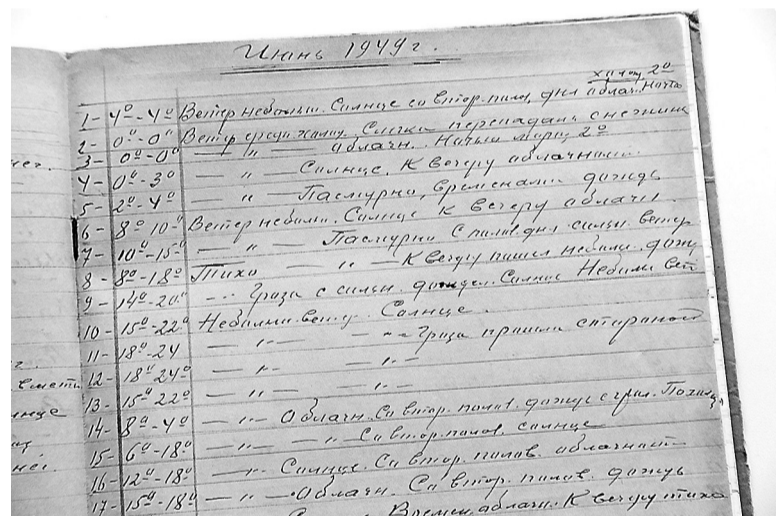 Июнь 1949 г.
холод. 2º
1 - 4º - 4º Ветер небольш. Солнце со втор. полов. дня облач. Ночь
2 - 0º - 0º Ветер Слегка перепадали снежинк
3 - 0º - 0º — " — облачн. Ночью мороз 2º
4 - 0º - 3º — " — Солнце. К вечеру облачн
5 - 2º - 4º — " — Пасмурно, временами дождь
6 - 8º - 10º Ветер небольш. Солнце к вечеру облачн.
7 - 10º - 15º — " — Пасмурно с полов. дня сильн. ветер
8 - 8º - 18º Тихо — " — К вечеру пошел небольш. дождь
9 - 14º - 20º - " - Гроза с сильн. дождем. Солнце Небольш вет
10 - 15º - 22º Небольш. ветер. Солнце.
11 - 18º - 24 — " — - " - Гроза прошла стороной
12 - 18º - 24º — " — — " —
13 - 15º 22º — " — — " —
14 - 8º - 4º — " — Облачн. Со втор. полов. дождь с гр.
15 - 6º - 18º — " — — " — Со втор. полов. солнце
16 - 12º - 18º — " — Солнце. Со втор. полов. облачн
17 - 15º - 18º — " — Облачн. Со втор. полов. дождь
Времен. облачн. К вечеру тихо